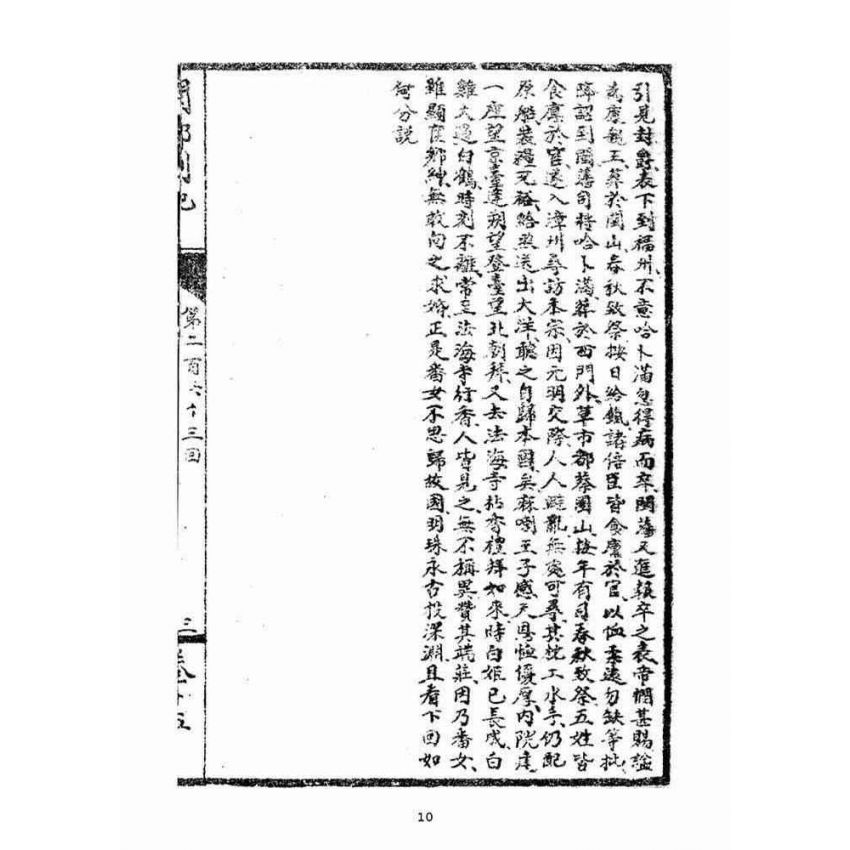 引見封爵表下到福州不意哈卜滿忽得病而卒閩藩又進報卒之表帝憫甚賜謚
為康親王葬於閩山春秋致祭按日給餼諸倍臣皆食廩於官以恤柔遠勿缺等批
降認到閩藩司將哈卜滿葬於西門外草市都蔡園山按年有司春秋致祭五姓皆
食廩於官遂入漳州尋訪本宗因元明交際人人避亂無處可尋其梳工水手仍配
原船裝糧充裕給照送出大洋聽之自歸本國矣麻喇王子感天恩恤優厚內院建
一座望京臺逢朔望登臺望北朝拜又去法海寺拈香禮拜如來時白姬已長成白
雞犬過白鶴時刻不離常至法海寺行香人皆見之無不稱異贊其端莊因乃番女
雖顯宦鄉紳無敢向之求婚正是番女不思歸故國明珠永古投深淵且看下回如
何分說
閩都別記
第二百六十三回
三
卷十五
10